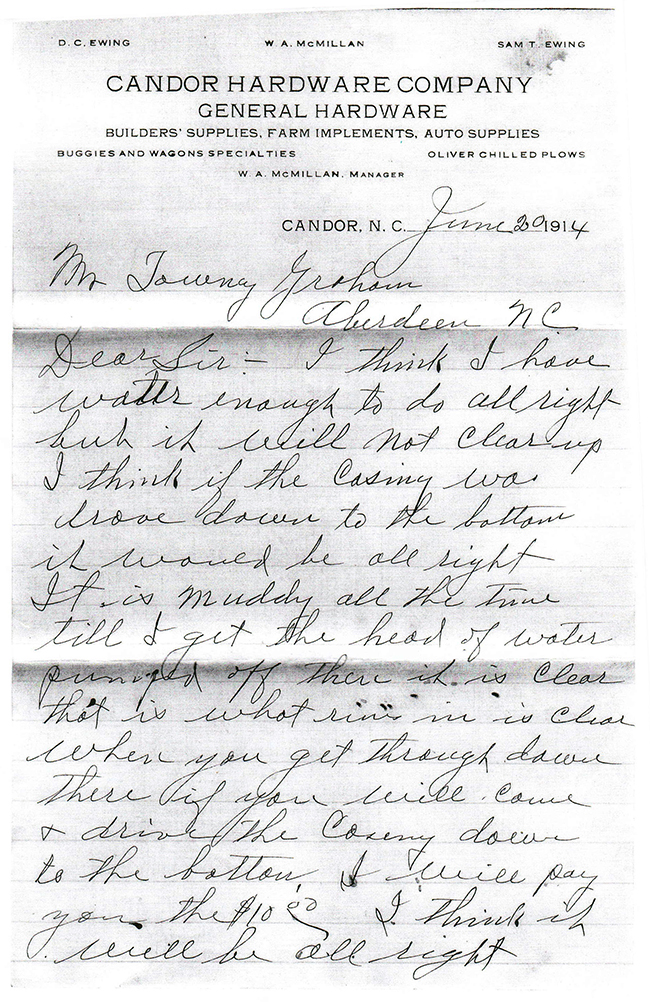 D. C. EWING W. A. McMILLAN SAM T. EWING
CANDOR HARDWARE COMPANY
GENERAL HARDWARE
BUILDERS' SUPPLIES, FARM IMPLEMENTS, AUTO SUPPLIES
BUGGIES AND WAGONS SPECIALTIES OLIVER CHILLED PLOWS
W. A. McMILLAN. MANAGER
CANDOR, N. C. June 20 1914
Mr Towney Graham
Aberdeen NC
Dear Sir:- I think I have
water enough to do all right
but it will not clear up
I think if the Casing was
drove down to the bottom
it would be all right
It is muddy all the time
till I get the head of water
pumped off then it is clear
that is what runs in is clear
When you get through down
there if you will come
& drive the Caseny down
to the bottom I will pay
you the $10 00 I think it
will be all right